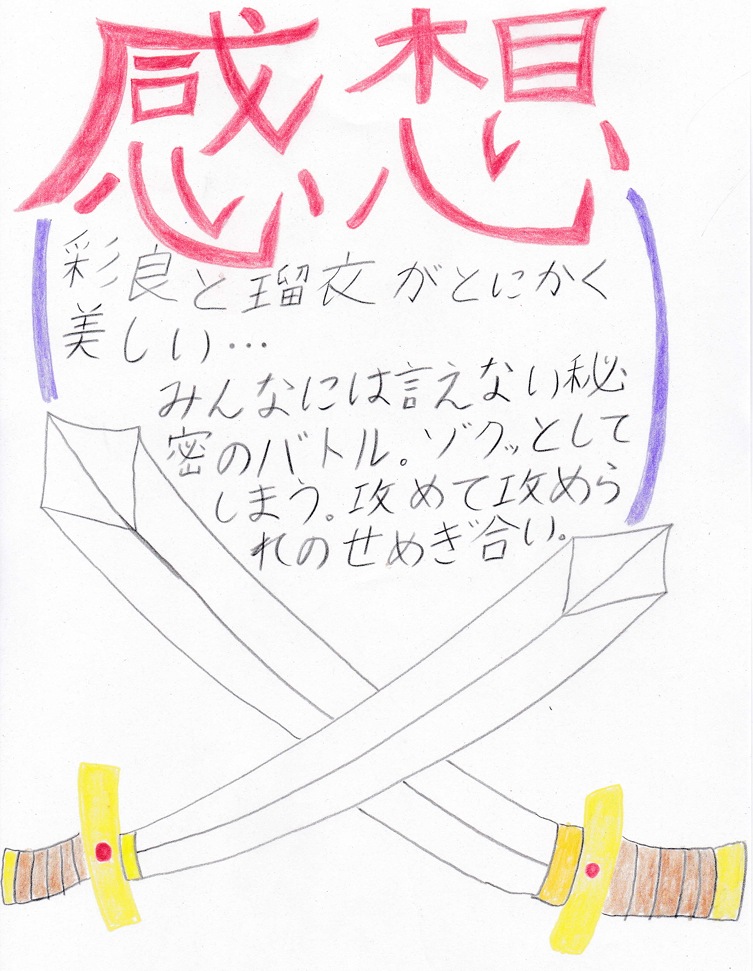 感想
彩良と瑠衣がとにかく
美しい…
みんなには言えない秘
密のバトル。ゾクッとして
しまう。攻めて攻めら
れのせめぎ合い。